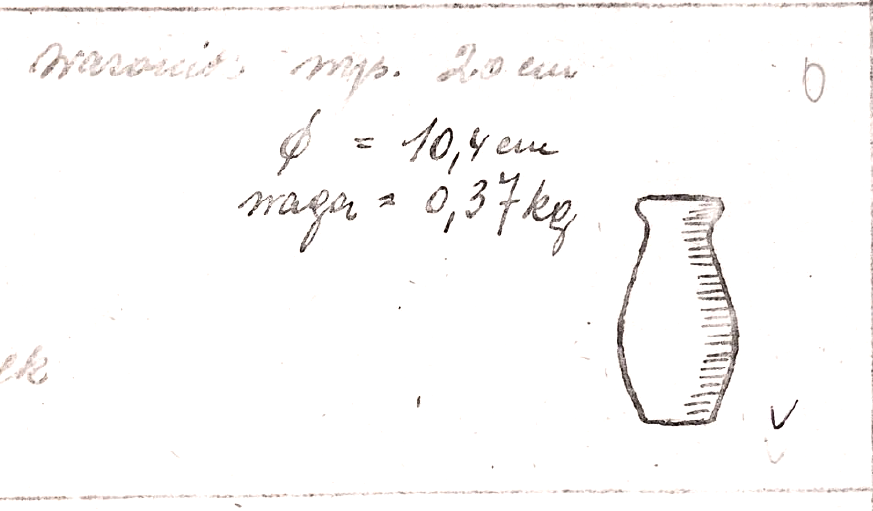 wazonik wys. 20 cm
ϕ = 10,4 cm
waga = 0,37 kg
ek
V